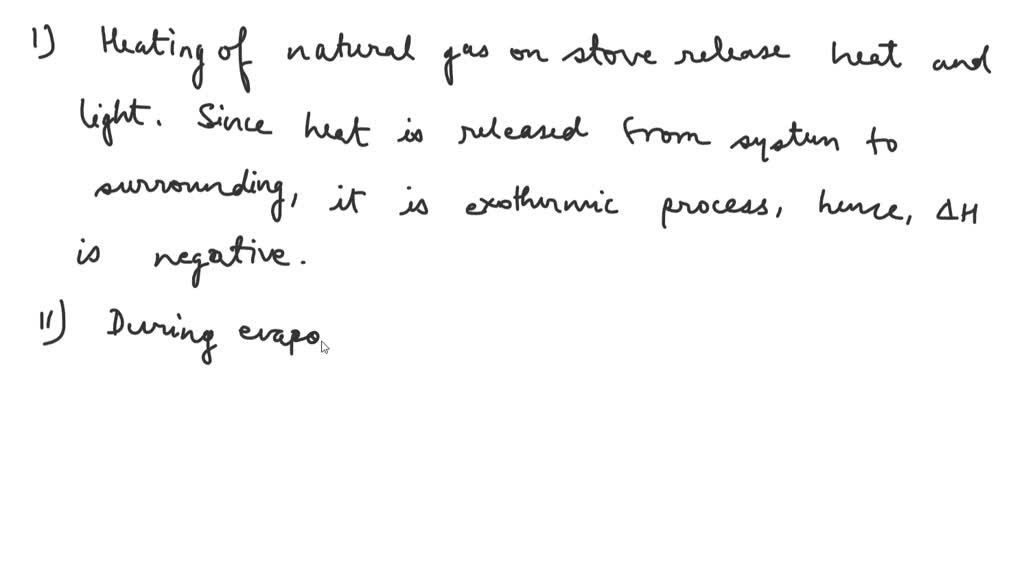 I) Heating of natural gas on stove release heat and
light. Since heat is released from system to
surrounding, it is exothermic process, hence, ΔH
is negative.
II) During evapo